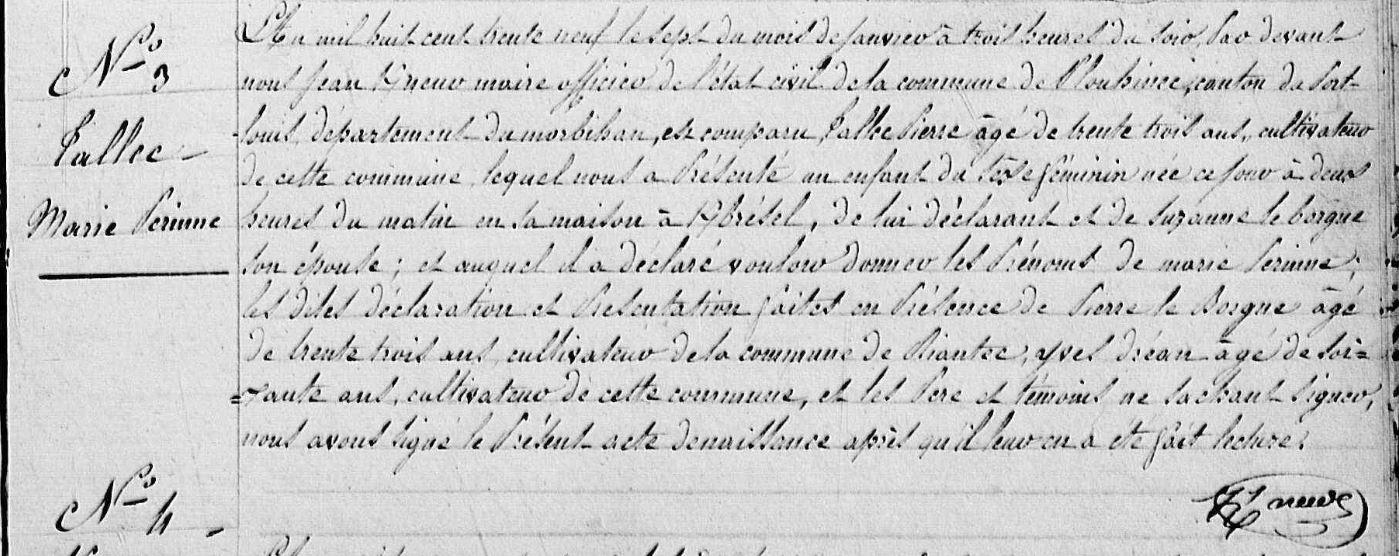 N° 3
Tallec
Marie Perinne
L'An mil huit cent trente neuf le sept du mois de janvier à trois heures du soir, Par devant
nous jean Kneur maire officier de l'état civil de la commune de Plouhinec, canton du Port-
-louis, département du morbihan, est comparu Tallec Pierre âgé de trente trois ans, cultivateur
de cette commune, lequel nous a Présenté un enfant du sexe féminin née ce jour à deux
heures du matin en sa maison à Kbrésel, de lui déclarant et de suzanne le borgne
son épouse; et auquel il a déclaré vouloir donner les Prénoms de marie Perinne;
les dites déclaration et Présentation faites en Présence de Pierre le Borgne âgé
de trente trois ans, cultivateur de la commune de Riantec, yves dréan âgé de soi=
=xante ans, cultivateur de cette commune, et les Pere et témoins ne sachant signer,
nous avons signé le Présent acte de naissance après qu'il leur en a eté fait lecture.
N° 4